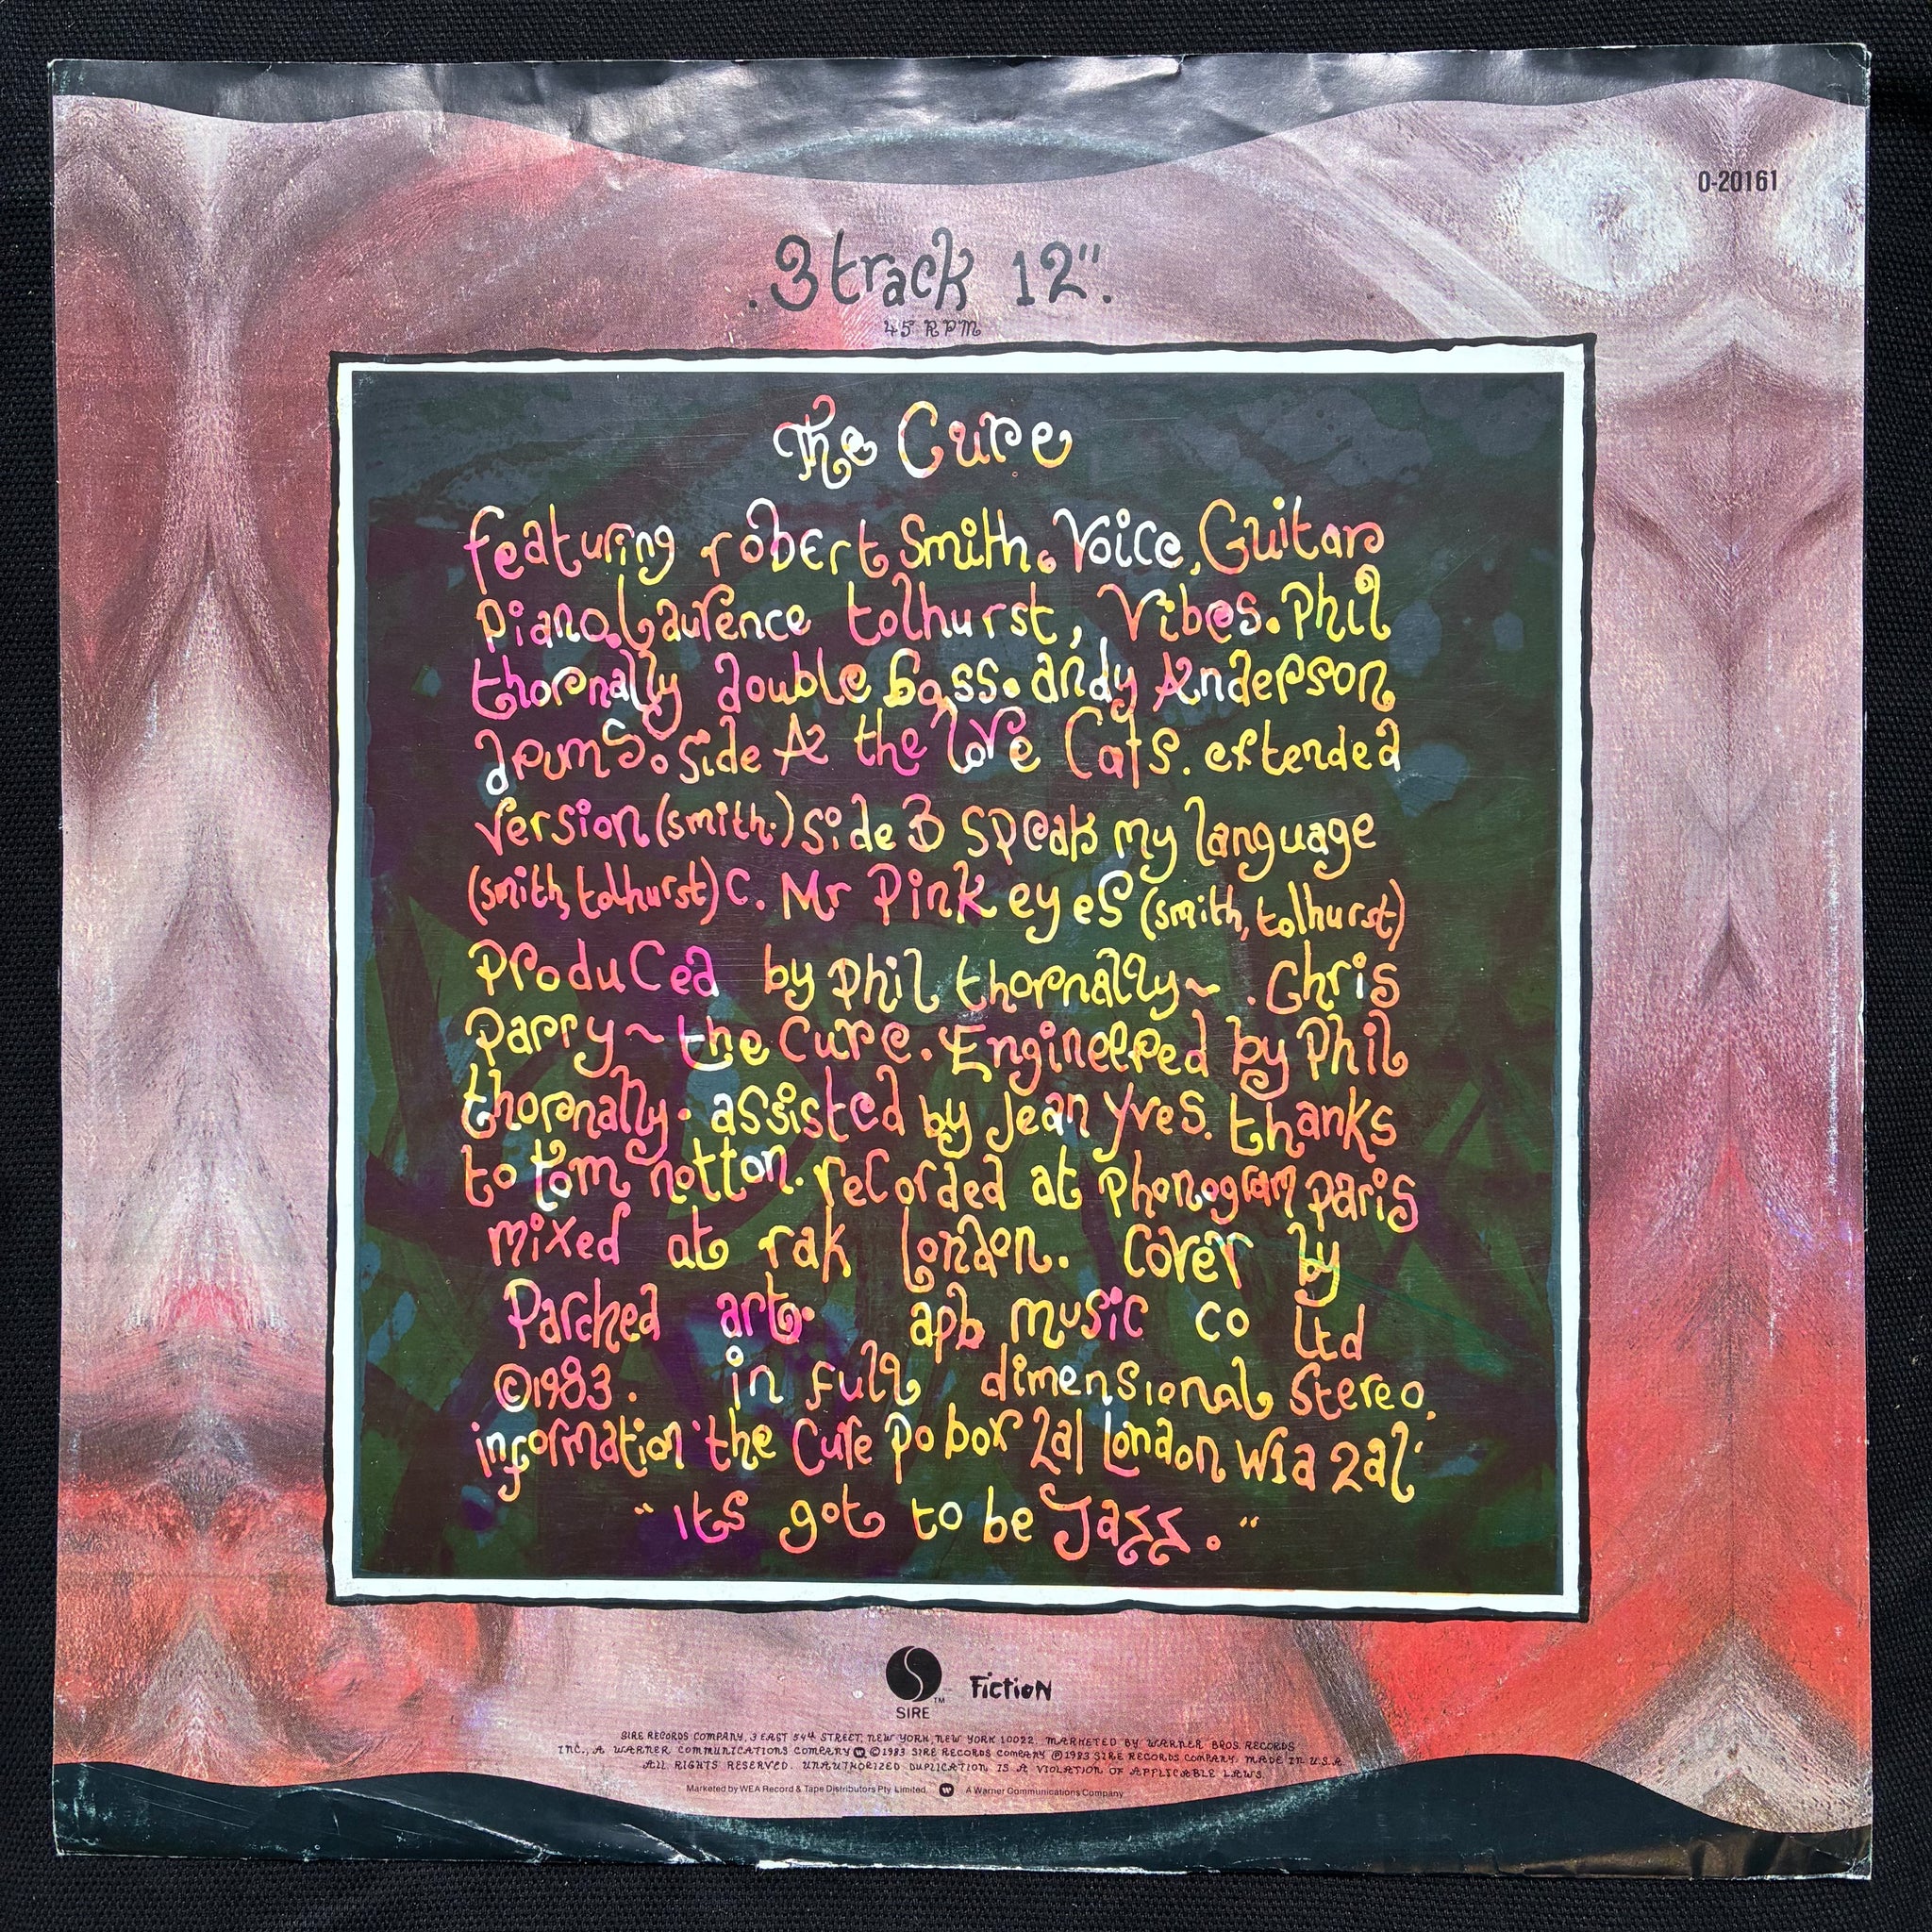 0-20161
.3 track 12".
45 RPM
The Cure
featuring robert Smith. Voice, Guitar
piano. Laurence tolhurst, Vibes. Phil
thornally double bass. andy Anderson
drums. Side A the love Cats. extended
version (smith.) Side B speak my language
(smith, tolhurst) C. Mr Pink eyes (smith, tolhurst)
produced by phil thornally~ . Chris
parry ~ the Cure. Engineered by Phil
thornally. assisted by Jean Yves. thanks
to tom notton. recorded at phonogram paris
mixed at rak london. Cover by
Parched art. apb music co Ltd
©1983. in full dimensional stereo.
information 'the Cure po box 2al London W1a 2al'
"Its got to be Jazz."
SIRE
TM
Fiction
SIRE RECORDS COMPANY, 3 EAST 54th STREET, NEW YORK, NEW YORK 10022. MARKETED BY WARNER BROS. RECORDS
INC., A WARNER COMMUNICATIONS COMPANY ©1983 SIRE RECORDS COMPANY ℗1983 SIRE RECORDS COMPANY. MADE IN U.S.A.
ALL RIGHTS RESERVED. UNAUTHORIZED DUPLICATION IS A VIOLATION OF APPLICABLE LAWS.
Marketed by WEA Record & Tape Distributors Pty Limited. A Warner Communications Company